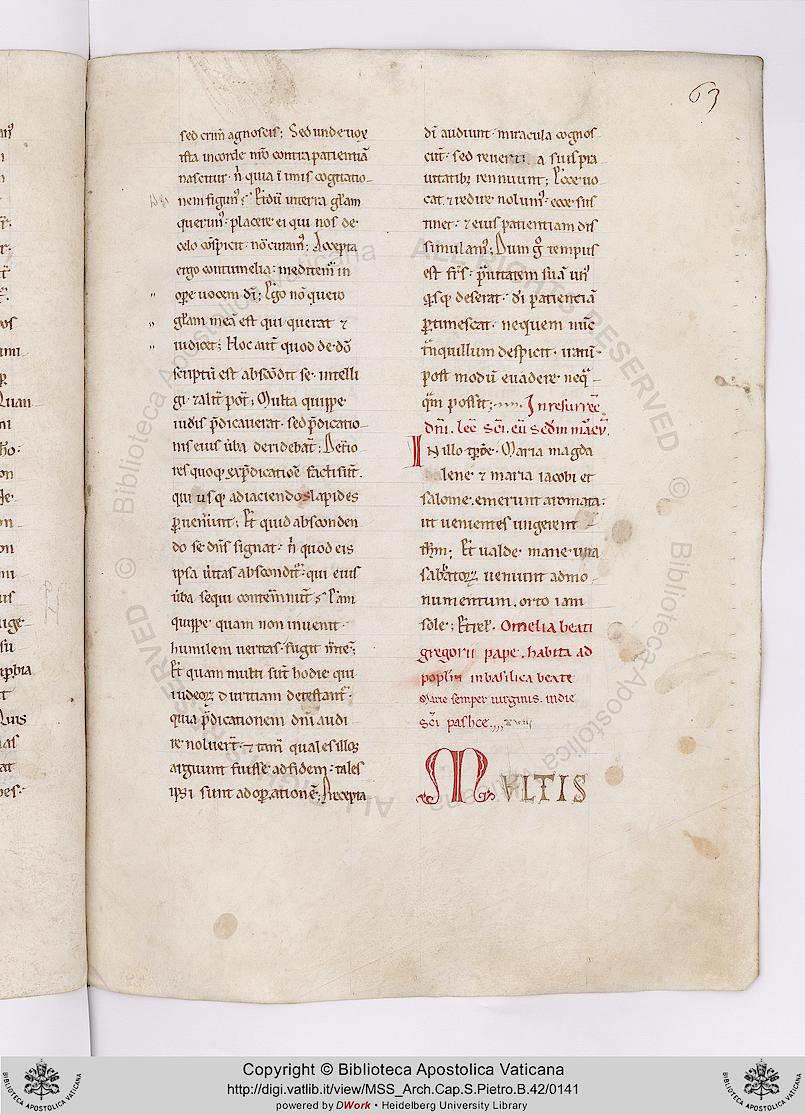 63
sed crim̅ agnoscis; Sed unde uox
ista in corde nr̅o contra patientia̅
nascitur. n̅ quia i̅ imis cogitatio-
nem figim᷒; Et du̅ in terra gl̅am
querim᷒. placere ei qui nos de
celo co̅spicit. no̅ curam᷒; Accepta
ergo contumelia. meditem᷒ in
ope̅ uocem d̅i; Ego no̅ quero
gl̅am mea̅ est qui querat ⁊
iudicet; Hoc aut̅ quod de d̅o
scriptu̅ est abscondit se. intelli
gi ⁊ alit̅ pot̅; Multa quippe
iudeis p̅dicauerat. sed p̅dicatio-
nis eius u̅ba deridebat̅; Deterio
res quoq; ex p̅dicatio̅e facti su̅t.
qui usq; ad iaciendos lapides
p̲uener̅unt; Et quid absconden
do se dn̅s signat. n̅ quod eis
ipsa u̅itas abscondit᷑. qui eius
u̅ba sequi conte̅nu̅t; Ea̅m
quippe quam non inuenit
humilem ueritas. fugit m̅te̅;
Et quam multi su̅t hodie qui
iudeoꝝ duritiam detestant᷑.
quia p̅dicationem dn̅i audi
re noluer̅t. ⁊ tam̅ quales illos
arguunt fuisse ad fidem. tales
ipsi sunt ad op̲atione̅; Precepta
d̅i audiunt. miracula cognos-
cu̅t. sed reuerti a suis pra
uitatib; rennuunt; Ecce uo
cat. ⁊ redire nolum᷒. ecce sus
tinet. ⁊ eius patientiam dis
simulam᷒; Dum g̊ tempus
est fr̅s. p̅uitatem sua̅ un᷒
q̲sq; deserat. d̅i patientia̅
p̲timescat. ne quem nu̅c
t̅nquillum despicit. iratu̅
post modu̅ euadere neq̅-
q̅m possit; In resurrec̅
dn̅i. lec̅ sc̅i. eu̅ sc̅d̅m marcu̅.
In illo tp̅re. Maria magda
lene ⁊ maria iacobi et
salome. emerunt aromata.
ut uenientes ungerent
ih̅m; Et ualde mane una
sabbatoꝝ ueniunt ad mo-
numentum. orto iam
sole; Et rel̅. Omelia beati
gregorii pape. habita ad
popl̅m in basilica beate
Marie semper uirginis. in die
sc̅i pasche
MULTIS
Copyright © Biblioteca Apostolica Vaticana
http://digi.vatlib.it/view/MSS_Arch.Cap.S.Pietro.B.42/0141
powered by DWork • Heidelberg University Library